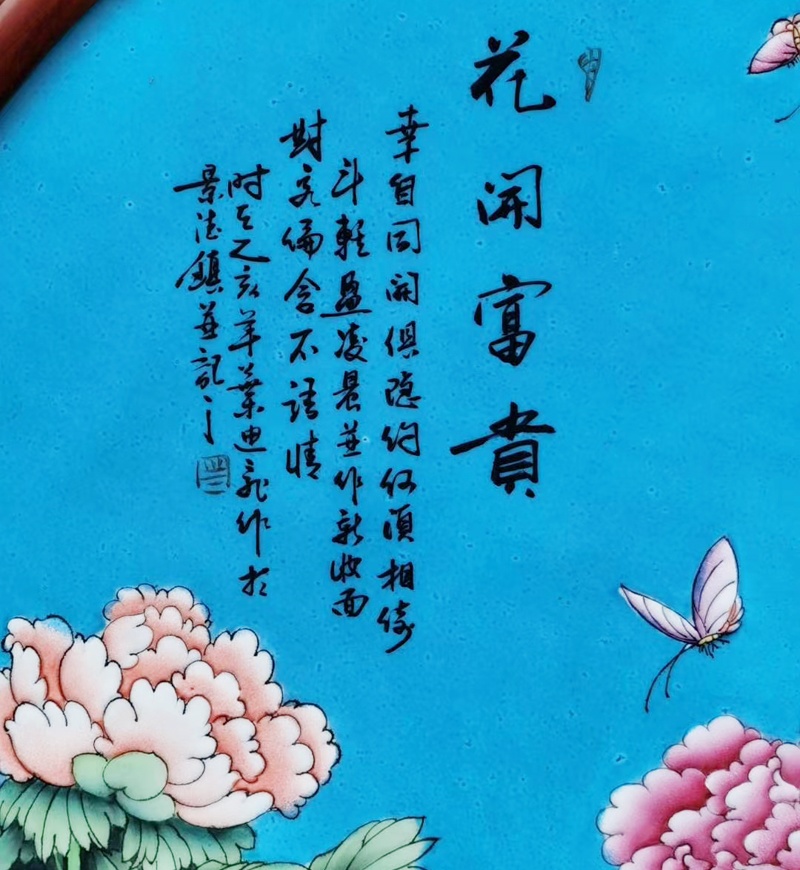 花開富貴
幸自同開俱隐約何須相倚
斗輕盈凌晨並作新妝面
對客偏含不語情
时在乙亥年葉迪龙作於
景德鎮並記之